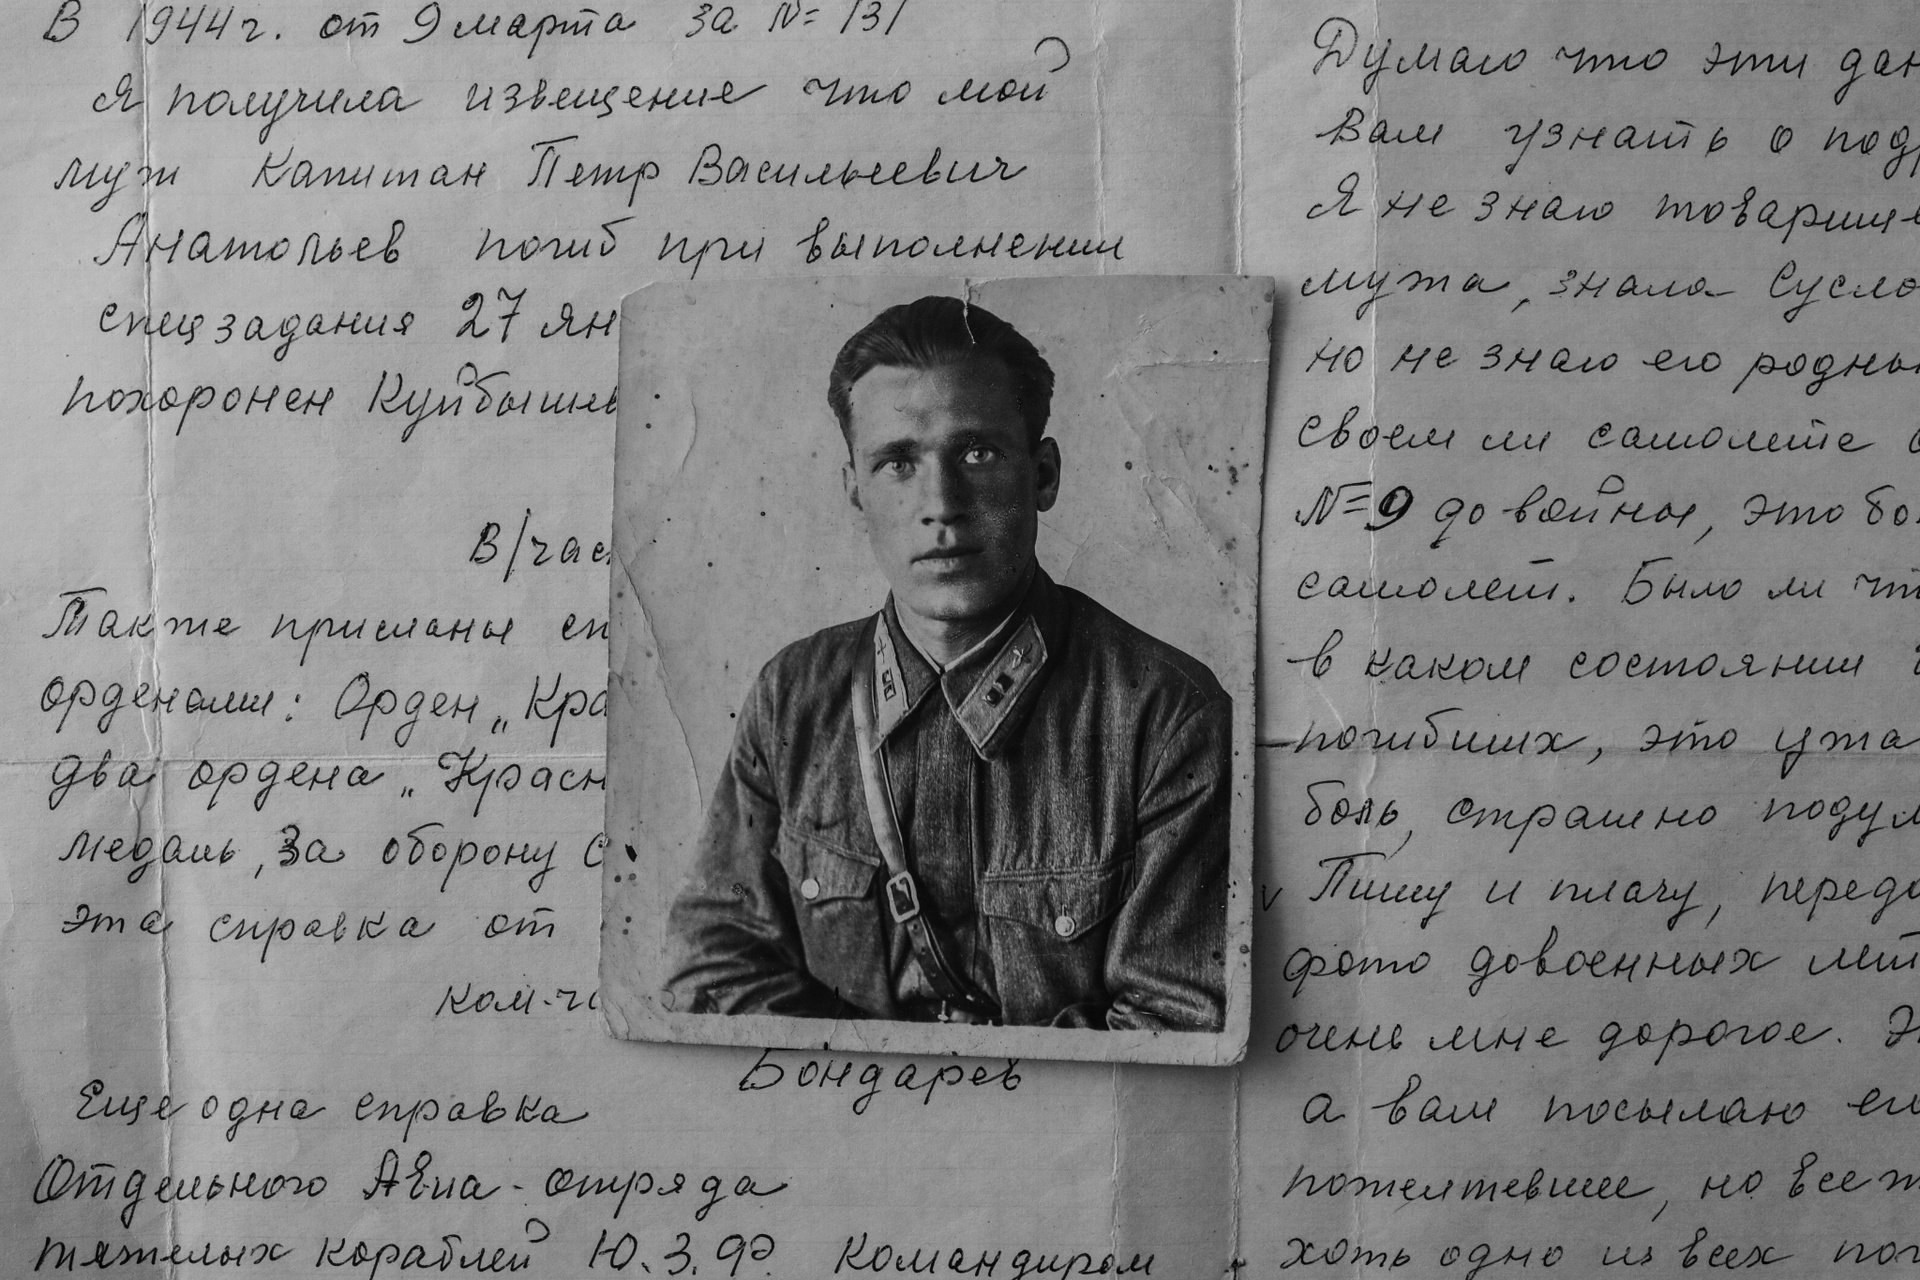 В 1944 г. от 9 марта за №= 131
Я получила извещение что мой
муж Капитан Петр Васильевич
Анатольев погиб при выполнении
спецзадания 27 ян
похоронен Куйбышев
В/час
Также присланы сп
орденами: Орден „Кра
два ордена „Красн
медаль, За оборону С
эта справка от
ком-ча
Бондарев
Еще одна справка
Отдельного Авиа-отряда
тяжелых кораблей Ю.З.Ф. Командиром
Думаю что эти дан
Вам узнать о под
Я не знаю товарище
мужа, знала Сусло
но не знаю его родны
своем ли самолете
№=9 до войны, это бо
самолет. Было ли чт
в каком состоянии
погибших, это ужа
боль, страшно подум
Пишу и плачу, переда
фото довоенных лет
очень мне дорогое. Э
а вам посылаю ег
пожелтевшее, но все ж
хоть одно из всех пог